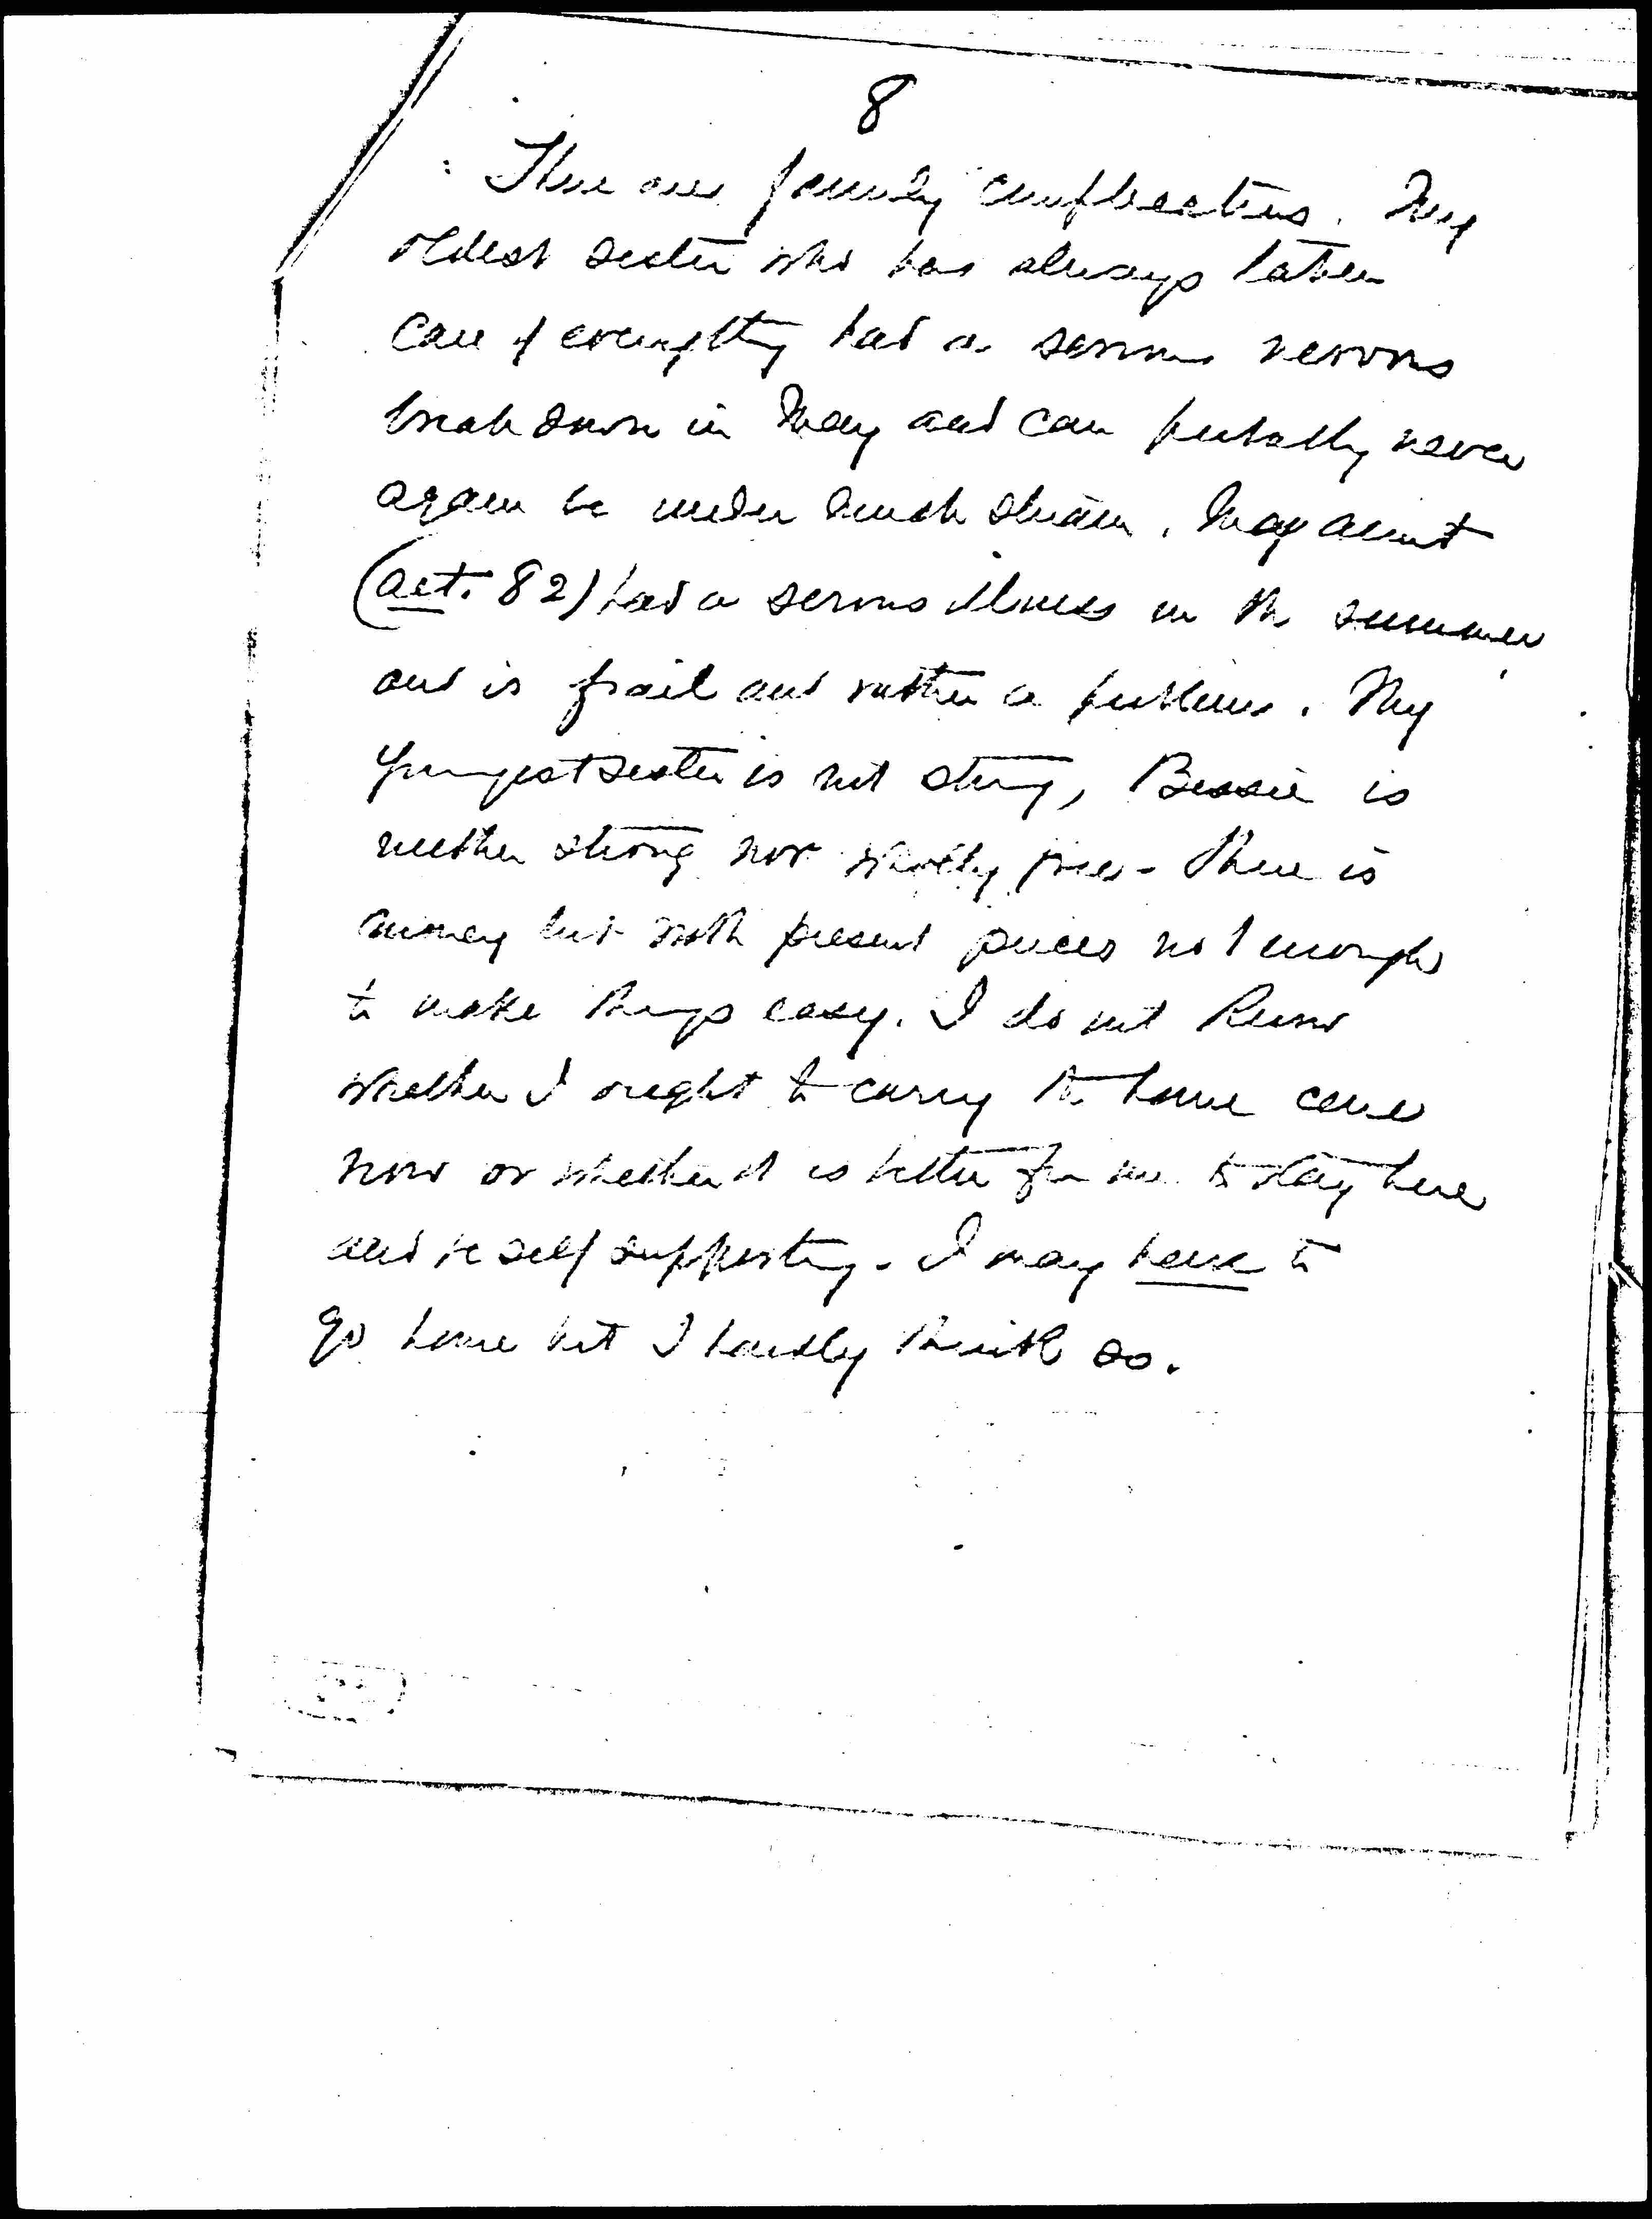 8
There are family complications. My
oldest sister who has always taken
care of everything had a serious nervous
breakdown in May and can probably never
again be under much strain. My aunt
(aet. 82) had a serious illness in the summer
and is frail and rather a problem. My
youngest sister is not strong, Bessie is
neither strong nor wholly free - There is
money but with present prices not enough
to make things easy. I do not know
whether I ought to carry the home cares
now or whether it is better for me to stay here
and be self supporting - I may have to
go home but I hardly think so.